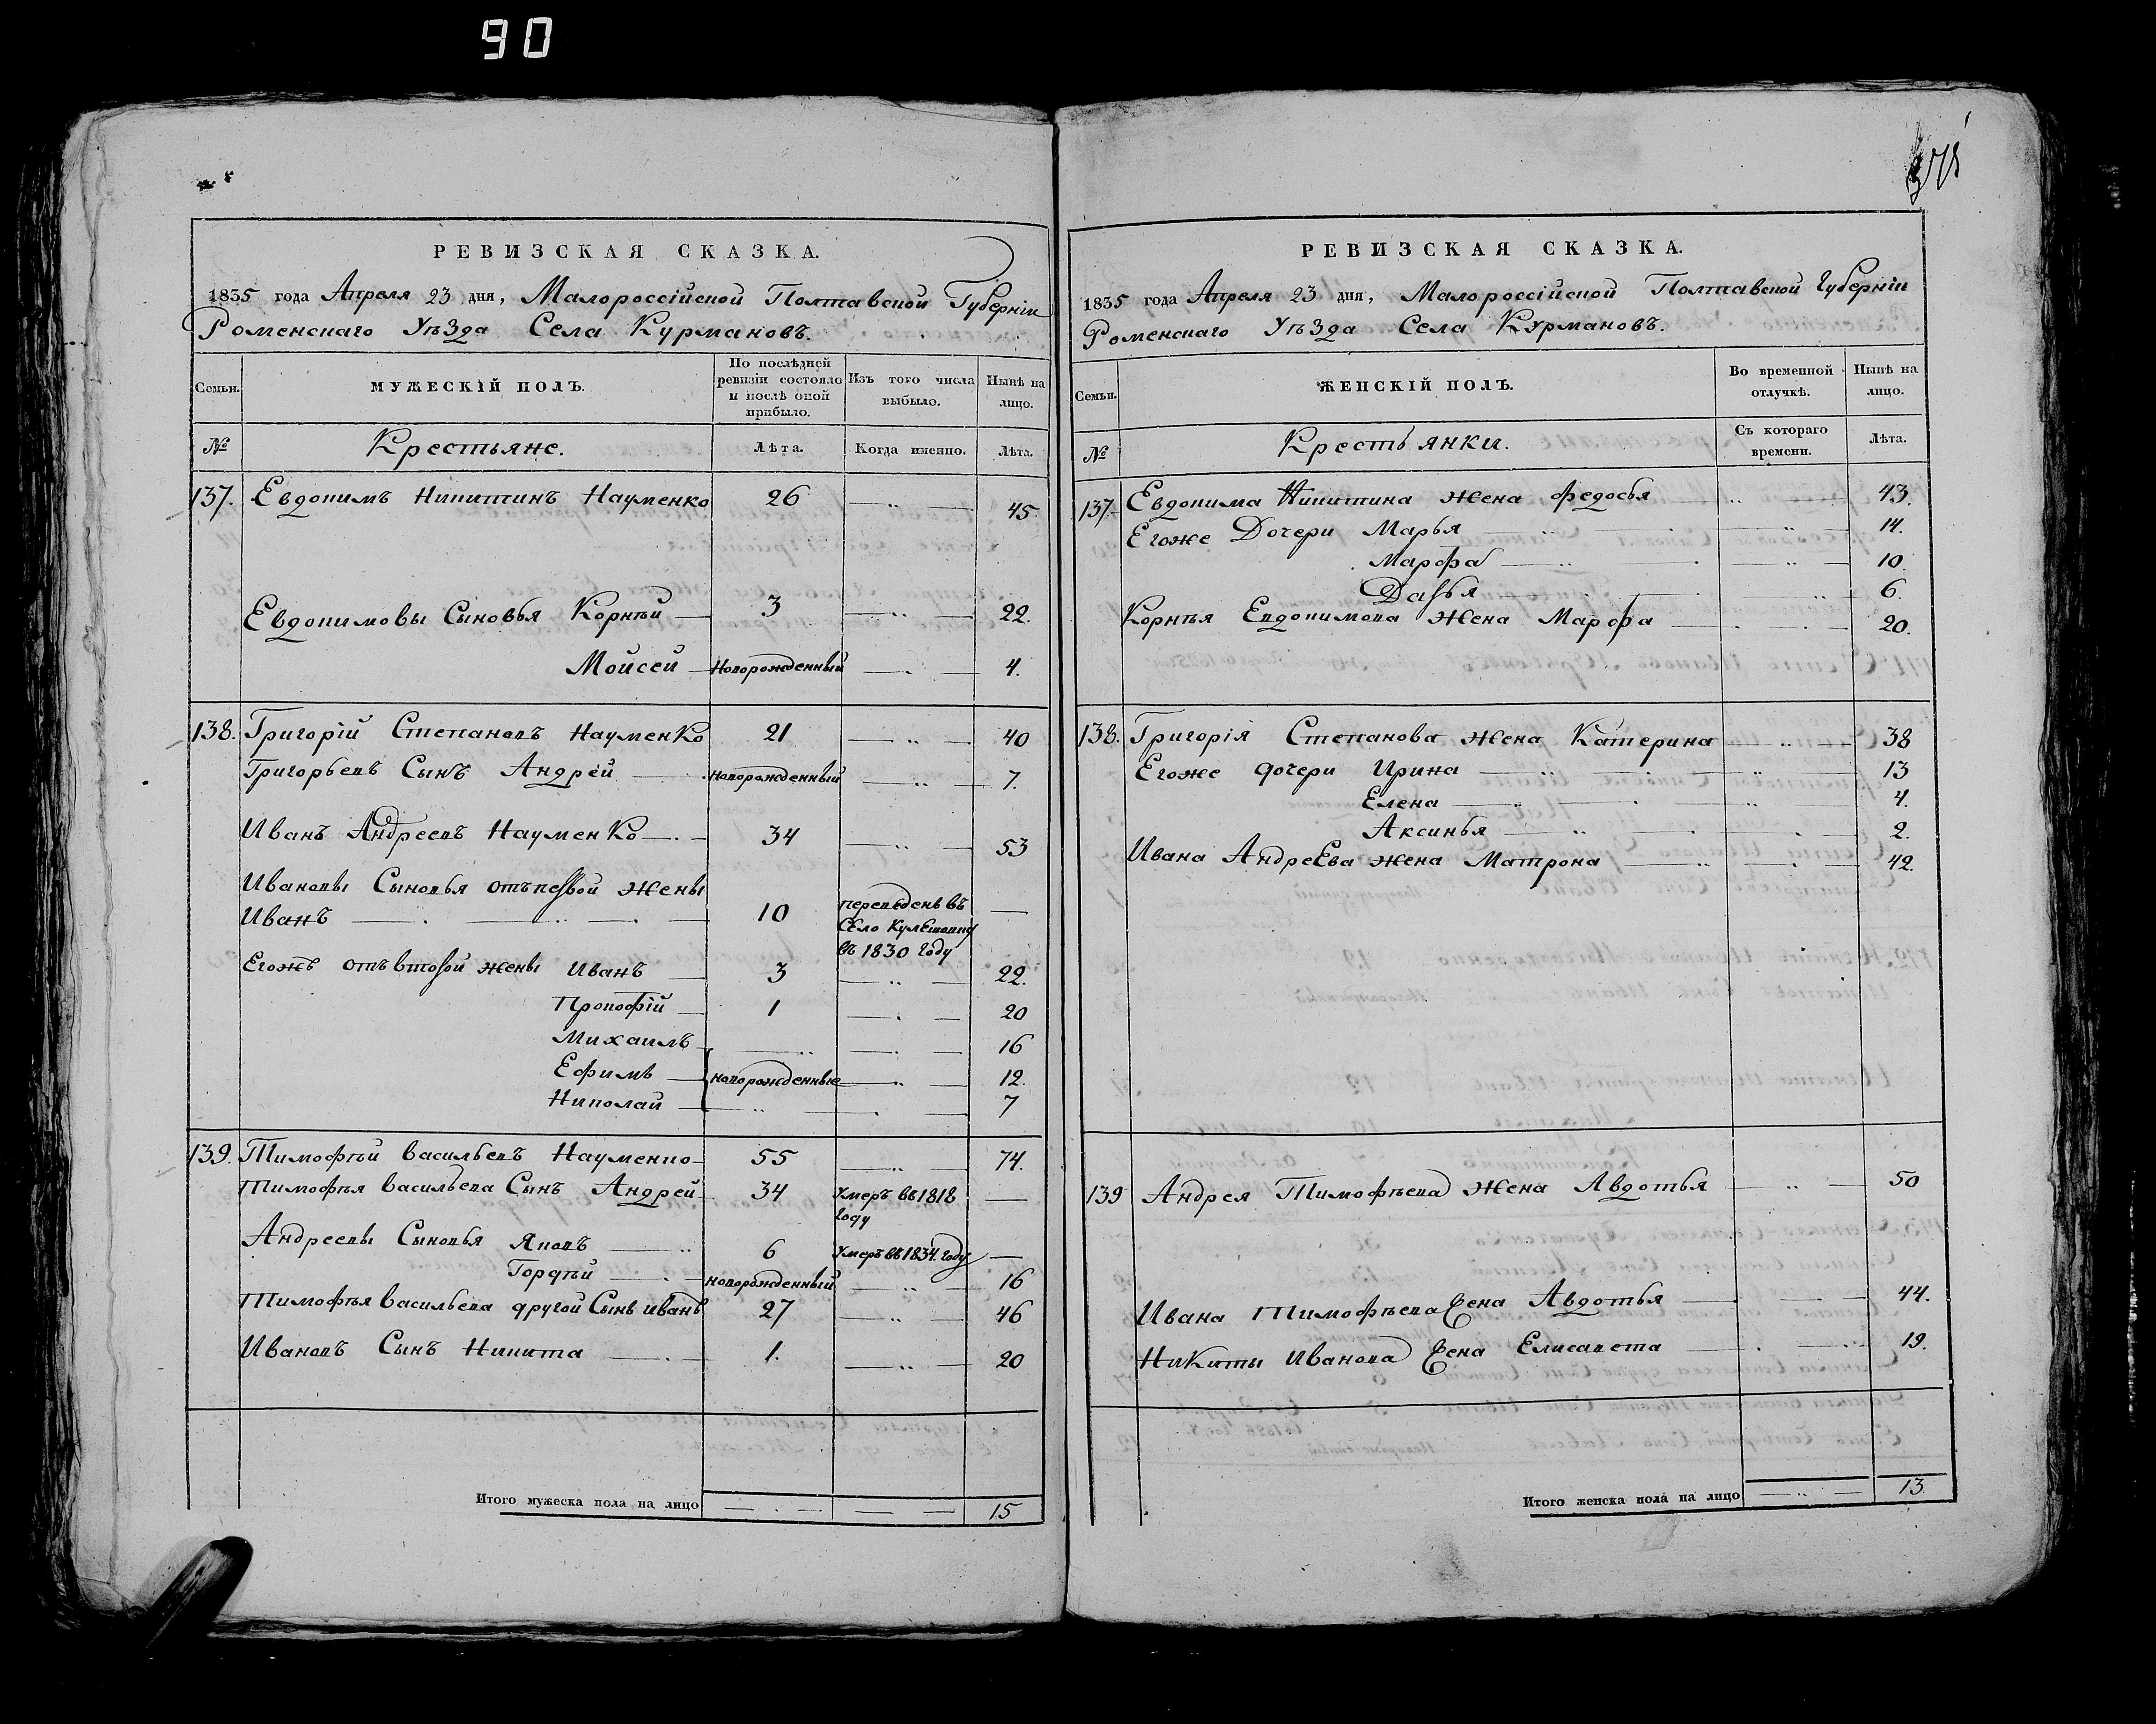 90
РЕВИЗСКАЯ СКАЗКА.
1835 года Апреля 23 дня, Малороссійской Полтавской Губерніи
Роменскаго Уѣзда Села Курмановъ.
Семьи.
МУЖЕСКІЙ ПОЛЪ.
По послѣдней
ревизіи состояло
и послѣ оной
прибыло.
Изъ того числа
выбыло.
Нынѣ на
лицо.
№
Крестьяне.
Лѣта.
Когда именно.
Лѣта.
137. Евдокимъ Никитинъ Науменко 26 45.
Евдокимовы Сыновья Корнѣй 3 22.
Мойсей Новорожденный 4.
138. Григорій Степановъ Науменко 21 40
Григорьевъ Сынъ Андрей новорожденный 7.
Иванъ Андреевъ Науменко 34 53
Ивановы Сыновья отъ первой жены
Иванъ 10 переведенъ въ
Село
въ 1830 году
Егожъ отъ второй жены Иванъ 3 22.
Прокофій 1 20
Михаилъ 16
Ефимъ новорожденные 12.
Николай 7
139. Тимофѣй Васильевъ Науменко 55 74.
Тимофѣя Васильева Сынъ Андрей 34 Умеръ въ 1818
году
Андреевы Сыновья Яковъ 6 Умеръ въ 1834. году
Гордѣй новорожденный 16
Тимофѣя Васильева другой Сынъ Иванъ 27 46
Ивановъ Сынъ Никита 1. 20
Итого мужеска пола на лицо 15
РЕВИЗСКАЯ СКАЗКА.
1835 года Апреля 23 дня, Малороссійской Полтавской Губерніи
Роменскаго Уѣзда Села Курмановъ.
Семьи.
ЖЕНСКІЙ ПОЛЪ.
Во временной
отлучкѣ.
Нынѣ на
лицо.
№
Крестьянки.
Съ котораго
времени.
Лѣта.
137. Евдокима Никитина жена Федосья 43.
Егоже Дочери Марья 14.
Марфа 10.
Дарья 6.
Корнѣя Евдокимова жена Марфа 20.
138. Григорія Степанова жена Катерина 38
Егоже дочери Ирина 13
Елена 4.
Аксинья 2.
Ивана Андреева жена Матрона 42.
139 Андрея Тимофѣева жена Авдотья 50
Ивана Тимофѣева жена Авдотья 44.
Никиты Иванова жена Елисавета 19.
Итого женска пола на лицо 13